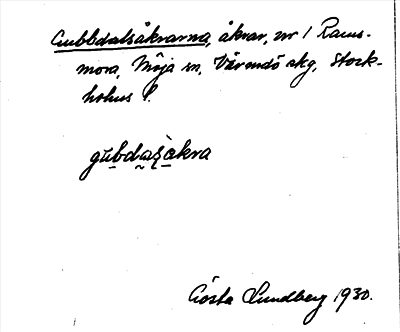 Gubbdalsåkrarna, åkrar, nr 1 Rams-
mora, Möja sn, Värmdö skg, Stock-
holms l.
gubdaʂåkra
Gösta Sundberg 1930.